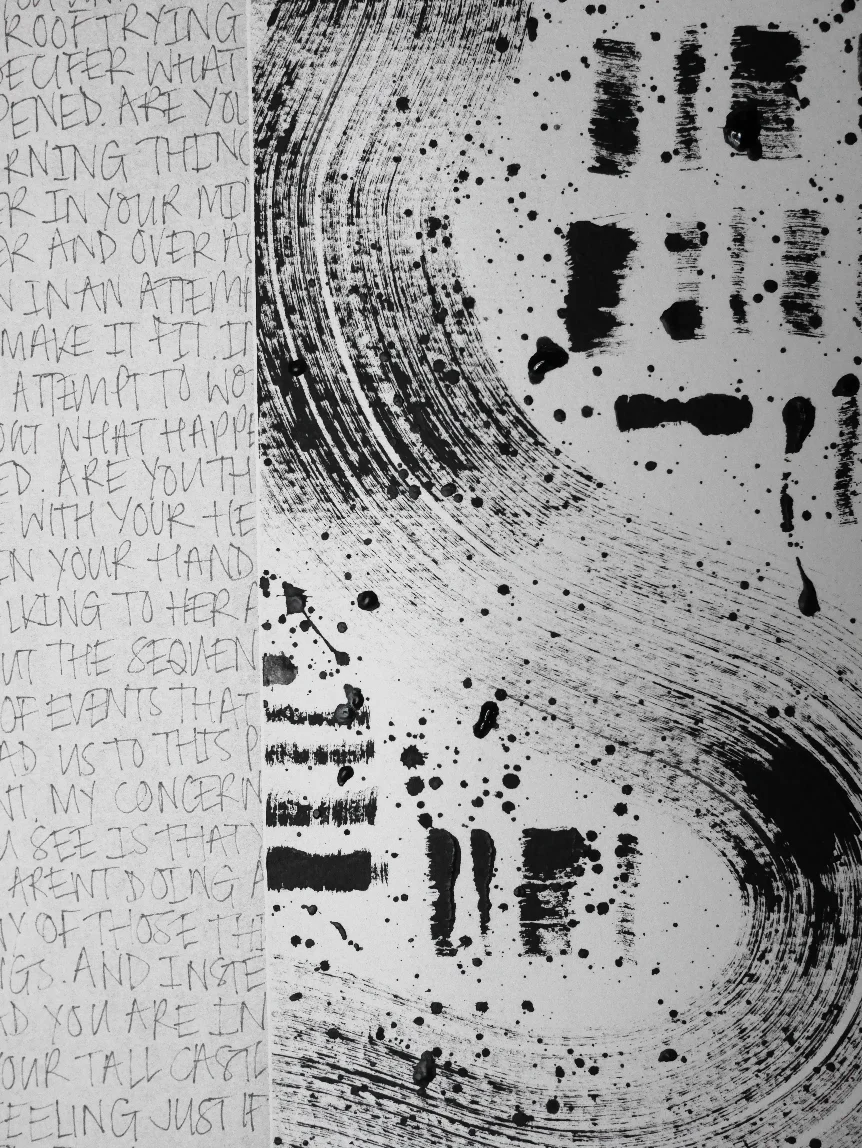 ROOF TRYING
DECIFER WHAT
PENED. ARE YOU
RNING THING
ER IN YOUR MI
ER AND OVER A
N IN AN ATTEM
MAKE IT FIT. I
ATTEMPT TO WO
OUT WHAT HAPPE
ED. ARE YOU TH
E WITH YOUR HE
IN YOUR HAND
LKING TO HER A
UT THE SEQUEN
OF EVENTS THAT
AD US TO THIS P
NT. MY CONCERN
U SEE IS THAT
ARENT DOING A
NY OF THOSE THI
NGS. AND INSTE
AD YOU ARE IN
YOUR TALL CASTL
FEELING JUST IF